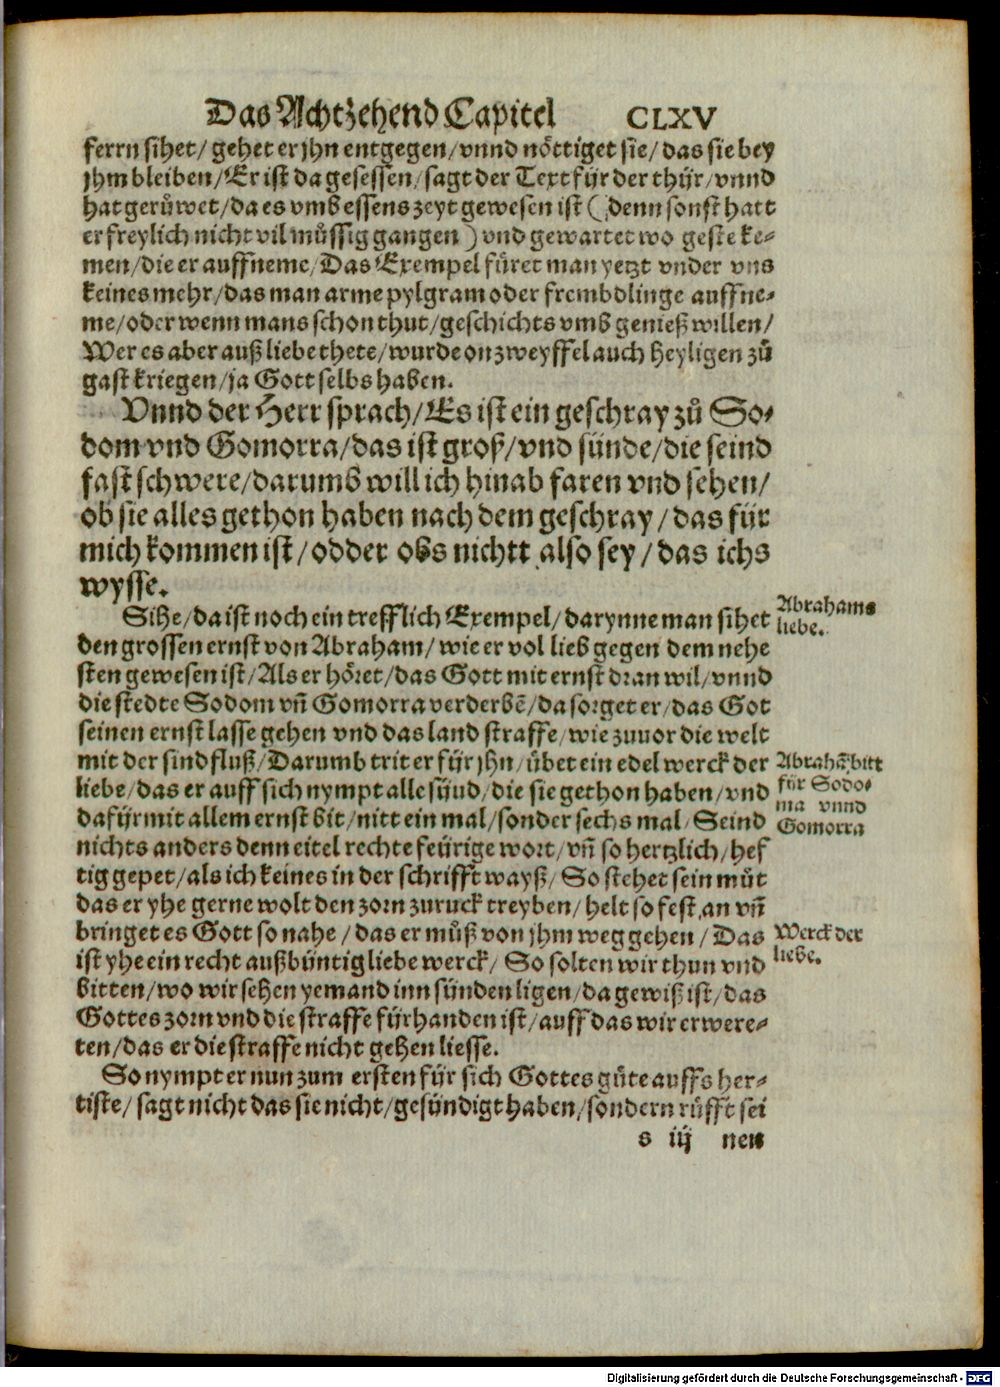 Das Achtzehend Capitel CLXV
ferrn sihet/ gehet er jhn entgegen/ vnnd nöttiget sie/ das sie bey
jhm bleiben/ Er ist da gesessen/ sagt der Text für der thür/ vnnd
hat gerůwet/ da es vmb essens zeyt gewesen ist (denn sonst hatt
er freylich nicht vil můssig gangen) vnd gewartet wo geste ke-
men/ die er auffneme/ Das Exempel füret man yetzt vnder vns
keines mehr/ das man arme pylgram oder frembdlinge auffne-
me/ oder wenn mans schon thut/ geschichts vmb genieß willen/
Wer es aber auß liebe thete/ wurde on zweyffel auch heyligen zů
gast kriegen/ ja Gott selbs haben.
Vnnd der Herr sprach/ Es ist ein geschray zů So-
dom vnd Gomorra/ das ist groß/ vnd sünde/ die seind
fast schwere/ darumb will ich hinab faren vnd sehen/
ob sie alles gethon haben nach dem geschray/ das für
mich kommen ist/ odder obs nichtt also sey/ das ichs
wysse.
Sihe/ da ist noch ein trefflich Exempel/ darynne man sihet
den grossen ernst von Abraham/ wie er vol lieb gegen dem nehe
sten gewesen ist/ Als er höret/ das Gott mit ernst dran wil/ vnnd
die stedte Sodom vñ Gomorra verderbẽ/ da sorget er/ das Got
seinen ernst lasse gehen vnd das land straffe/ wie zuuor die welt
mit der sindfluß/ Darumb trit er für jhn/ übet ein edel werck der
liebe/ das er auff sich nympt alle sünd/ die sie gethon haben/ vnd
dafür mit allem ernst bit/ nitt ein mal/ sonder sechs mal/ Seind
nichts anders denn eitel rechte feürige wort/ vñ so hertzlich/ hef
tig gepet/ als ich keines in der schrifft wayß/ So stehet sein můt
das er yhe gerne wolt den zorn zuruck treyben/ helt so fest an vñ
bringet es Gott so nahe/ das er můß von jhm weg gehen/ Das
ist yhe ein recht außbüntig liebe werck/ So solten wir thun vnd
bitten/ wo wir sehen yemand inn sünden ligen/ da gewiß ist/ das
Gottes zorn vnd die straffe fürhanden ist/ auff das wir erwere-
ten/ das er die straffe nicht gehen liesse.
So nympt er nun zum ersten für sich Gottes güte auffs her-
tiste/ sagt nicht das sie nicht/ gesündigt haben/ sondern růfft sei
s iij nen
Abrahams
liebe.
Abrahã bitt
für Sodo-
ma vnnd
Gomorra
Werck der
liebe.
Digitalisierung gefördert durch die Deutsche Forschungsgemeinschaft - DFG